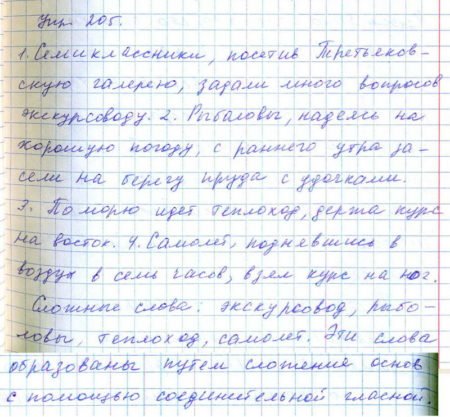 Упр. 205.
1. Семиклассники, посетив Третьяков-
скую галерею, задали много вопросов
экскурсоводу. 2. Рыбаловы, надеясь на
хорошую погоду, с раннего утра за-
сели на берегу пруда с удочками.
3. По морю идет теплоход, держа курс
на восток. 4. Самолет, поднявшись в
воздух в семь часов, взял курс на юг.
Сложные слова: экскурсовод, рыбо-
ловы, теплоход, самолет. Эти слова
образованы путем сложения основ
с помощью соединительной гласной.